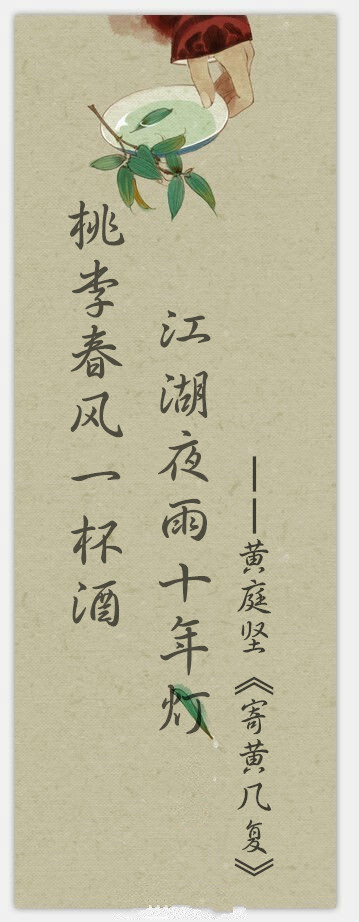 桃李春风一杯酒
江湖夜雨十年灯
——黄庭坚《寄黄几复》